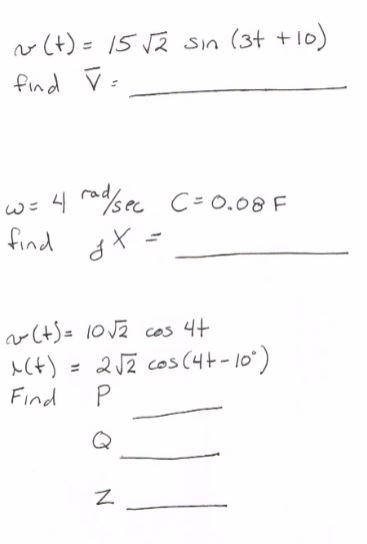 v(t) = 15 √2 sin (3t + 10)
find V̄ = ____________
ω = 4 rad/sec C = 0.08 F
find jX = ____________
v(t) = 10 √2 cos 4t
i(t) = 2 √2 cos (4t - 10°)
Find P ________
Q ________
Z ________